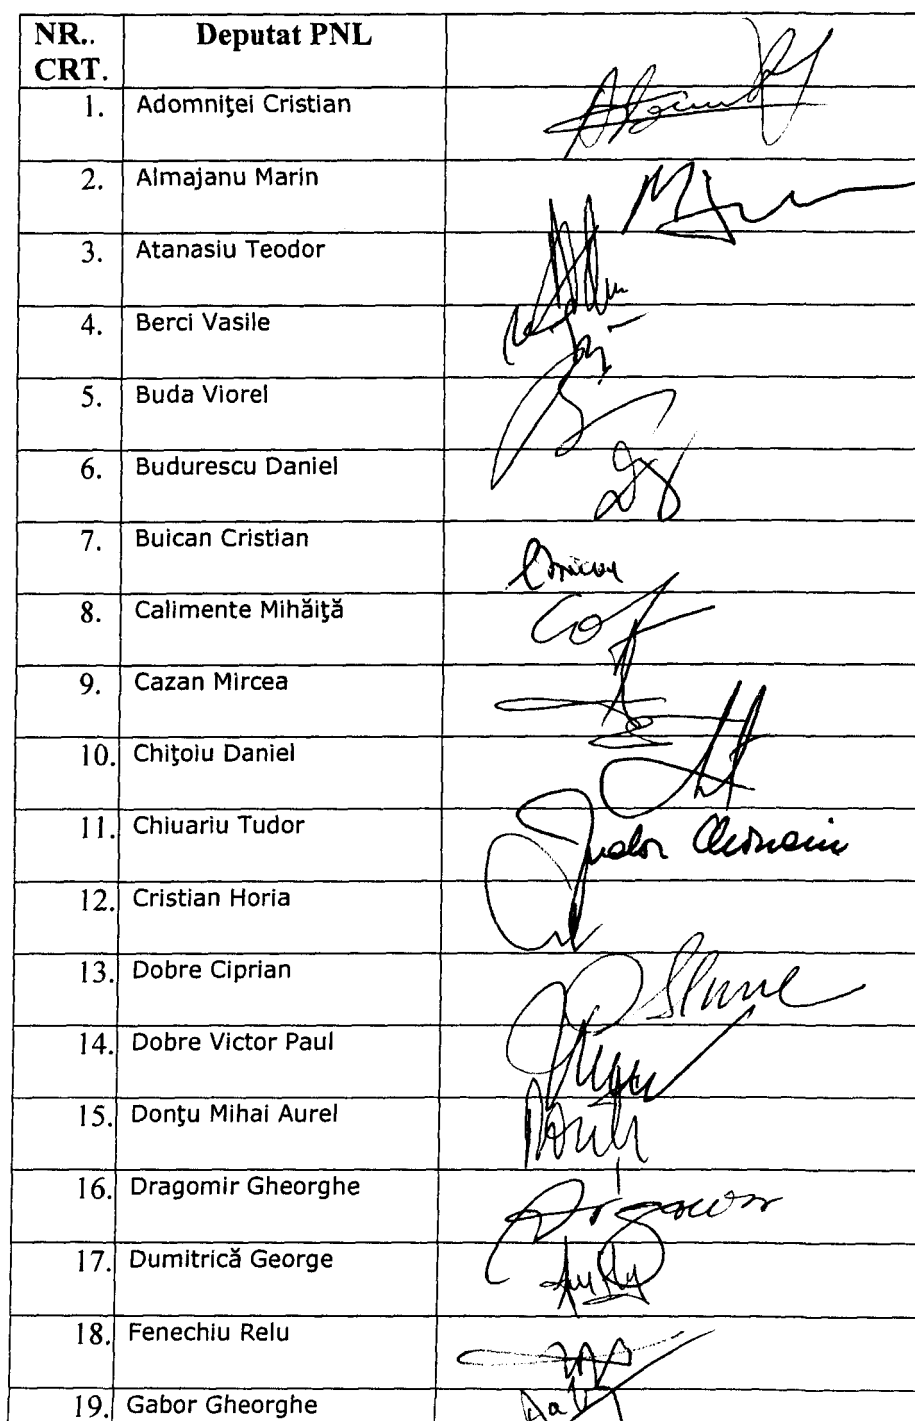 NR.. Deputat PNL
CRT.
1. Adomniţei Cristian
2. Almajanu Marin
3. Atanasiu Teodor
4. Berci Vasile
5. Buda Viorel
6. Budurescu Daniel
7. Buican Cristian
8. Calimente Mihăiţă
9. Cazan Mircea
10. Chiţoiu Daniel
11. Chiuariu Tudor
12. Cristian Horia
13. Dobre Ciprian
14. Dobre Victor Paul
15. Donţu Mihai Aurel
16. Dragomir Gheorghe
17. Dumitrică George
18. Fenechiu Relu
19. Gabor Gheorghe